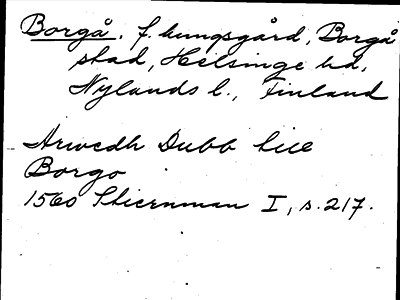 Borgå, f. kungsgård, Borgå
stad, Helsinge hd,
Nylands l., Finland
Arwedh Dubb till
Borgo
1560 Stiernman I, s. 217.